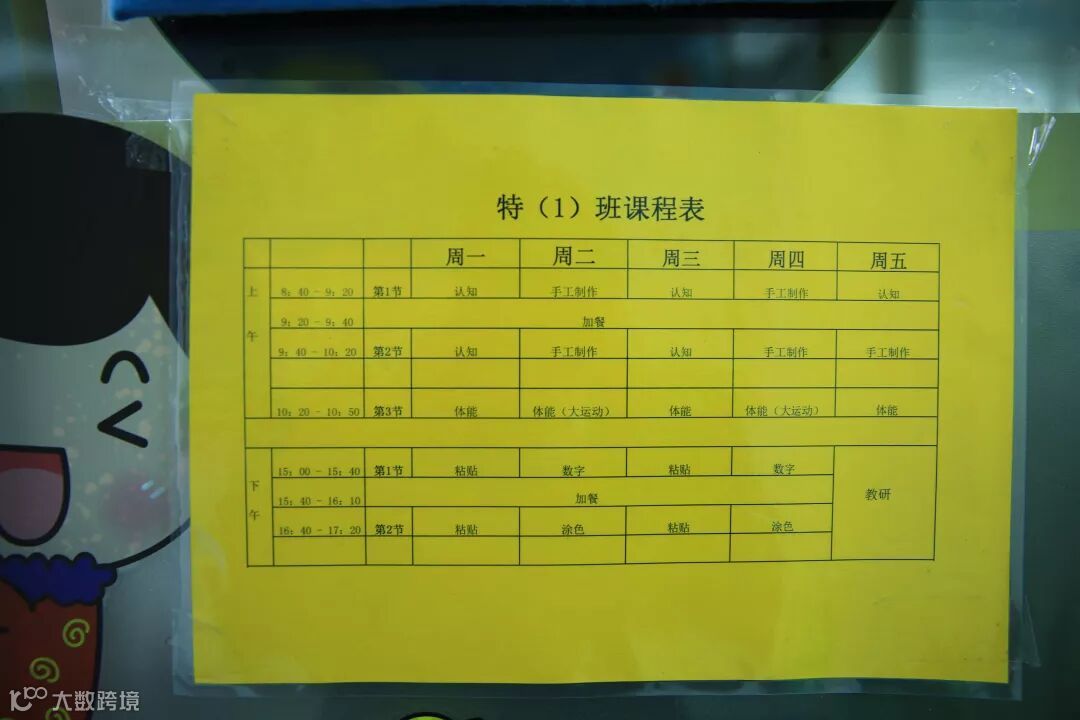 特（1）班课程表
周一 周二 周三 周四 周五
上午
8：40－9：20 第1节 认知 手工制作 认知 手工制作 认知
9：20－9：40 加餐
9：40－10：20 第2节 认知 手工制作 认知 手工制作 手工制作
10：20－10：50 第3节 体能 体能（大运动） 体能 体能（大运动） 体能
下午
15：00－15：40 第1节 粘贴 数字 粘贴 数字 教研
15：40－16：10 加餐
16：40－17：20 第2节 粘贴 涂色 粘贴 涂色
大数跨境